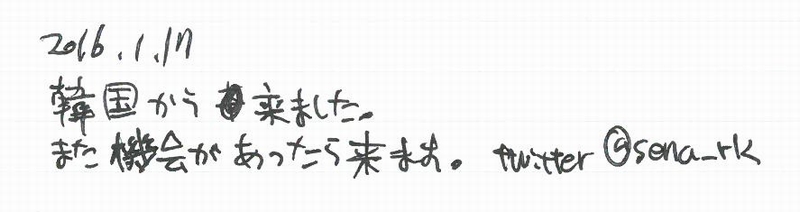 2016.1.17
韓国から来ました。
また機会があったら来ます。 twitter @sena_rk